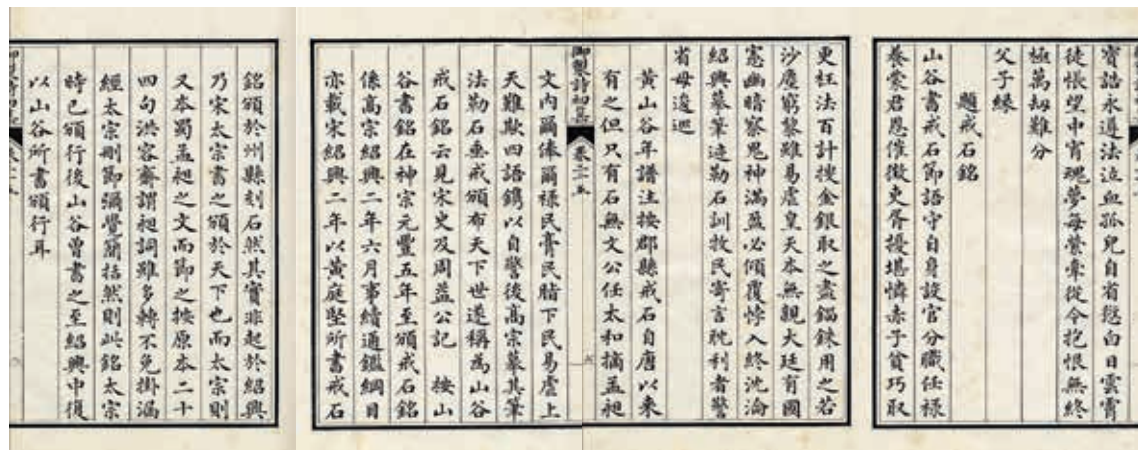 寶誥永遵法泣血孤兒自省愆白日雲霄
徒悵望中宵魂夢每縈牽從今抱恨無終
極萬劫難分
父子緣
題戒石銘
山谷書戒石節語守自身設官分職任祿
養蒙君恩催徵吏胥擾堪憐赤子貧巧取
更枉法百計搜金銀取之盡錙銖用之若
沙塵窮黎雖易虐皇天本無親大廷有國
憲幽暗察鬼神滿盈必傾覆悖入終沈淪
紹興摹筆迹勒石訓牧民寄言耽利者警
省毋逡巡
黃山谷年譜注按郡縣戒石自唐以來
有之但只有石無文公任太和摘孟昶
御製詩初集 卷二十五 六
文內爾俸爾祿民膏民脂下民易虐上
天難欺四語鐫以自警後高宗摹其筆
法勒石垂戒頒布天下世遂稱為山谷
戒石銘云見宋史及周益公記 按山
谷書銘在神宗元豐五年至頒戒石銘
係高宗紹興二年六月事續通鑑綱目
亦載宋紹興二年以黃庭堅所書戒石
銘頒於州縣刻石然其實非起於紹興
乃宋太宗書之頒於天下也而太宗則
又本蜀孟昶之文而節之按原本二十
四句洪容齋謂昶詞雖多轉不免掛漏
經太宗刪節彌覺簡括然則此銘太宗
時已頒行後山谷曾書之至紹興中復
以山谷所書頒行耳